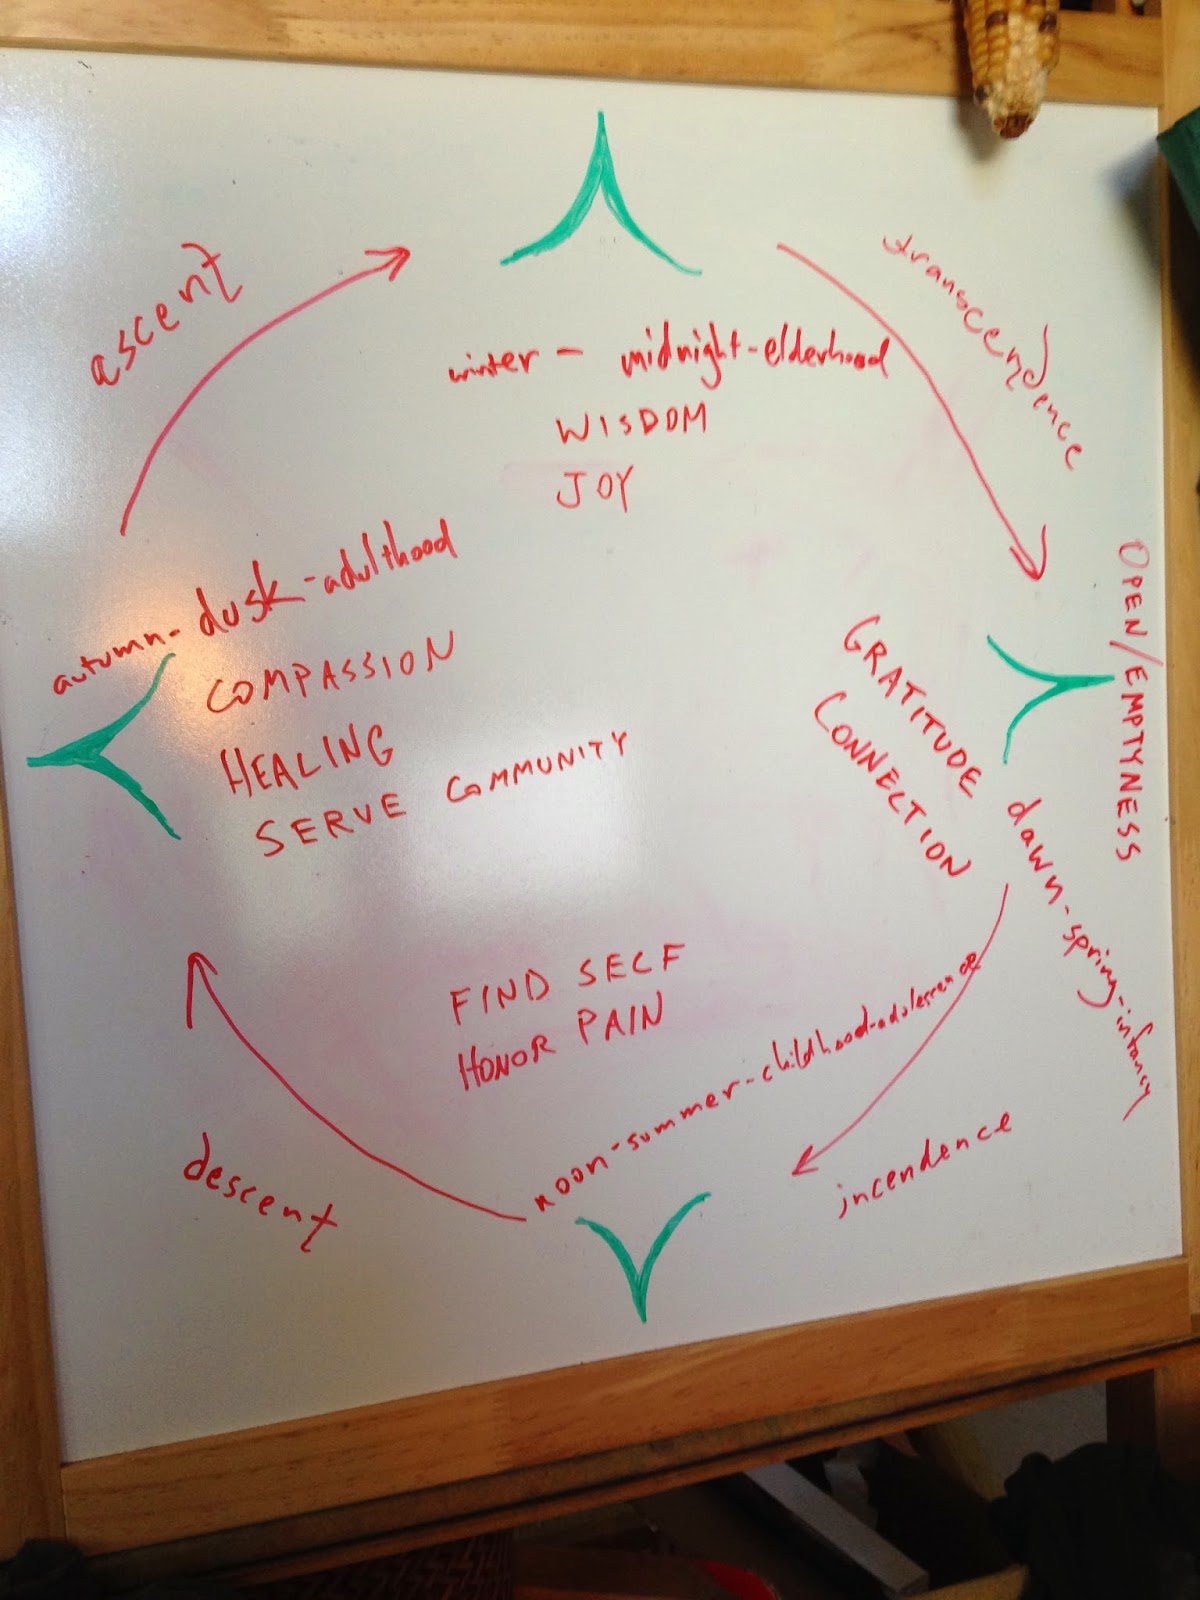 ascent
transcendence
winter - midnight-elderhood
WISDOM
JOY
autumn-dusk-adulthood
COMPASSION
HEALING
SERVE COMMUNITY
OPEN/EMPTYNESS
GRATITUDE
CONNECTION
dawn-spring-infancy
FIND SELF
HONOR PAIN
noon-summer-childhood-adolescence
descent
incendence